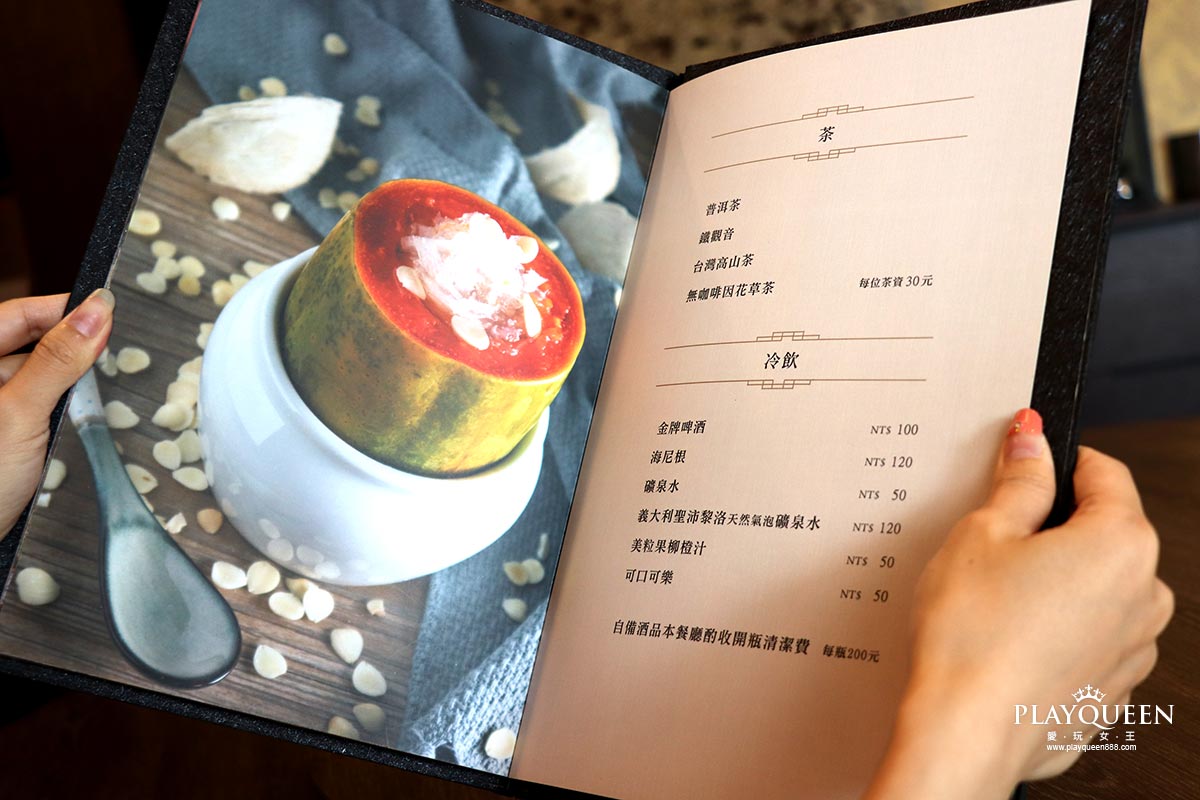 茶
普洱茶
鐵觀音
台灣高山茶
無咖啡因花草茶 每位茶資30元
冷飲
金牌啤酒 NT$ 100
海尼根 NT$ 120
礦泉水 NT$ 50
義大利聖沛黎洛天然氣泡礦泉水 NT$ 120
美粒果柳橙汁 NT$ 50
可口可樂 NT$ 50
自備酒品本餐廳酌收開瓶清潔費 每瓶200元
PLAYQUEEN
愛·玩·女·王
www.playqueen888.com